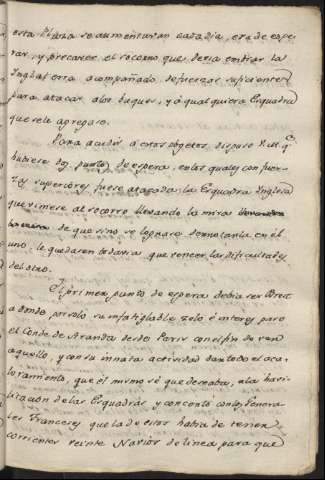 esta Plaza se aumentavan cada dia, era de espe
rar, y precaver el socorro que devia embiar la
Inglaterra acompañado de fuerzas suficientes
para atacar a los buques, y a qualquiera Esquadra
que se le agregase.
Para acudir a estos objetos, dispuso S. M. q.e
hubiese dos puntos de espera, en los quales con fuer
zas superiores fuese atacada la Esquadra Inglesa
que viniese al socorro llevando la mira
de que si no se lograse derrotarla en el
uno, le quedasen todavia que vencer las dificultades
del otro.
El primer punto de espera debia ser Brest
a donde por solo su infatigable zelo è interes paso
el Conde de Aranda desde Paris con el fin de ver
aquello, y con su innata actividad dar todo el aca
loramiento, que el mismo sé que deseaba, a la havi
litacion de las Esquadras y concertó con los Genera
les Franceses que la de estos habia de tener
corrientes veinte Navios de linea para que